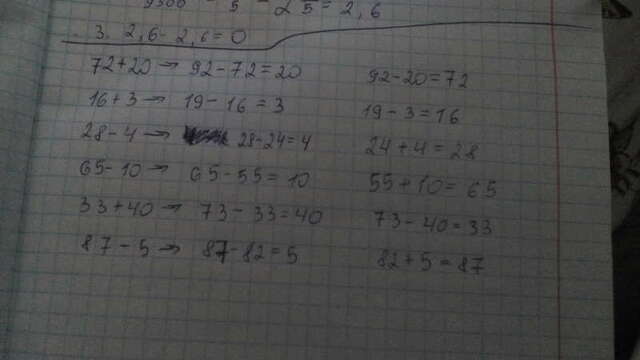 = 2,6
3. 2,6 - 2,6 = 0
72+20 → 92-72=20 92-20=72
16+3 → 19-16=3 19-3=16
28-4 → 28-24=4 24+4=28
65-10 → 65-55=10 55+10=65
33+40 → 73-33=40 73-40=33
87-5 → 87-82=5 82+5=87